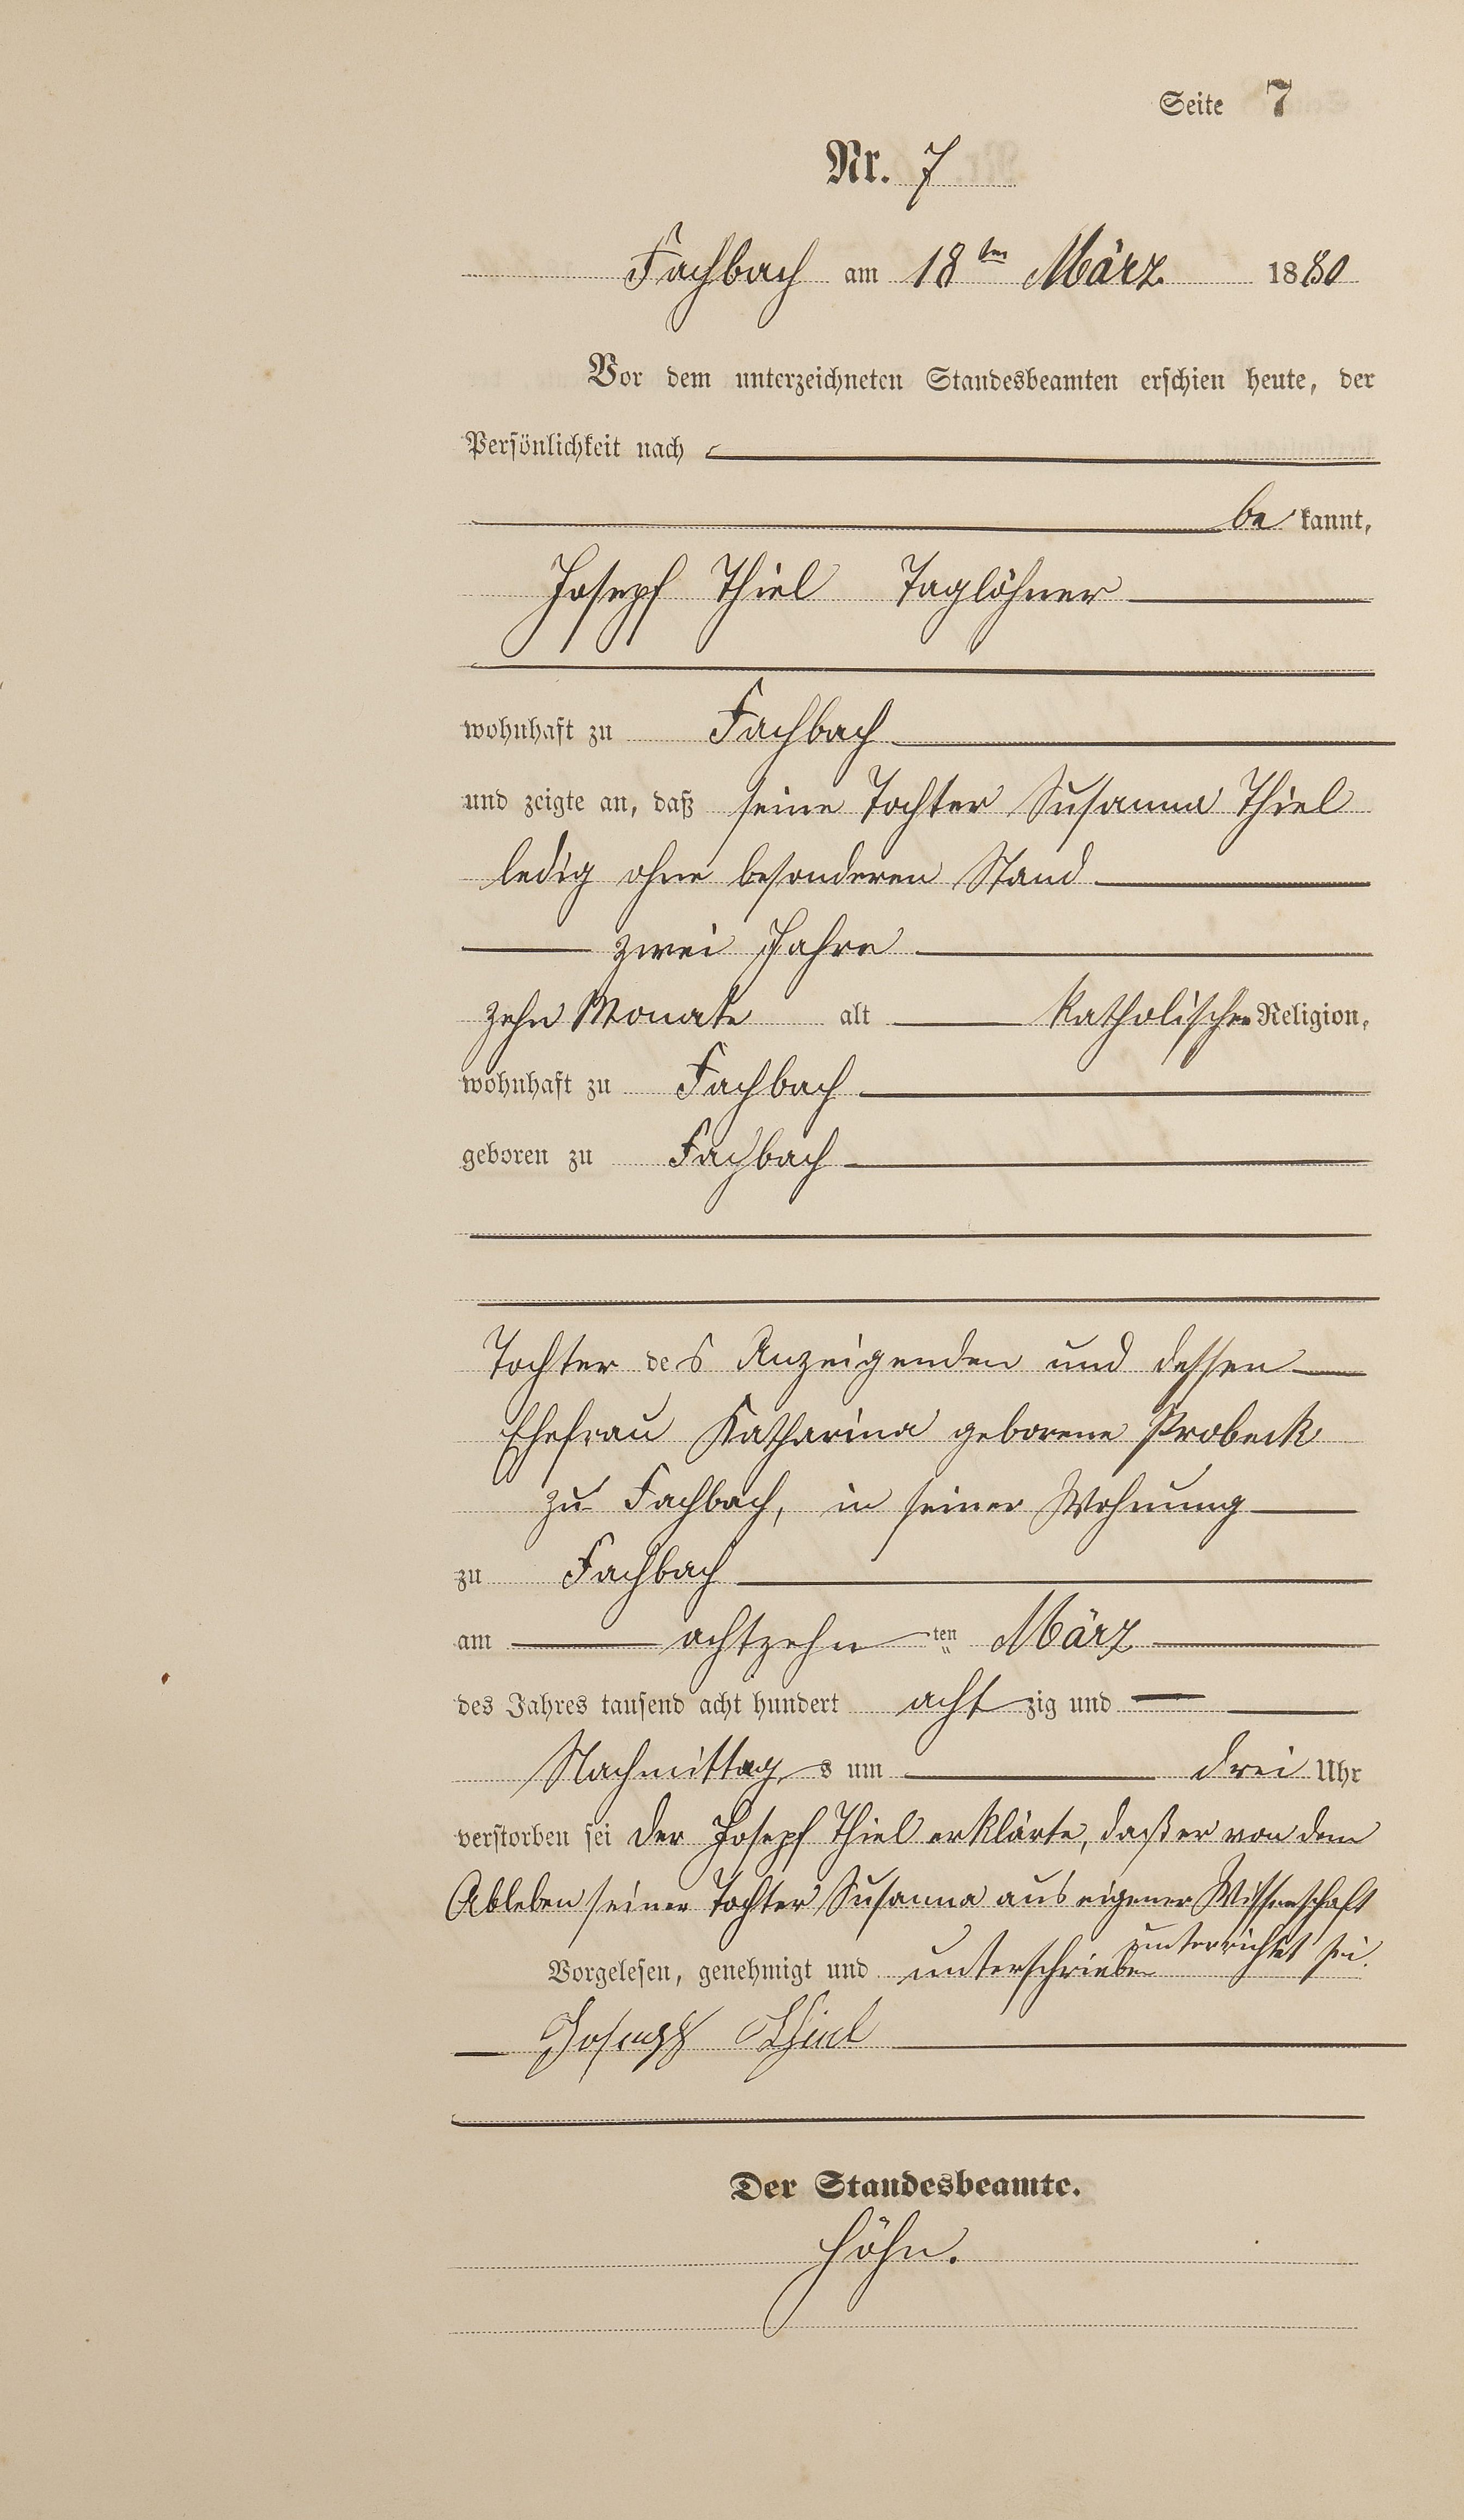 Seite 7
Nr. 7
Fachbach am 18ten März 1880
Vor dem unterzeichneten Standesbeamten erschien heute, der
Persönlichkeit nach
be kannt,
Joseph Thiel Taglöhner
wohnhaft zu Fachbach
und zeigte an, daß seine Tochter Susanna Thiel
ledig ohne besonderen Stand
zwei Jahre
zehn Monate alt katholischer Religion,
wohnhaft zu Fachbach
geboren zu Fachbach
Tochter des Anzeigenden und dessen
Ehefrau Katharina geborene Probeck
zu Fachbach, in seiner Wohnung
zu Fachbach
am achtzehn ten März
des Jahres tausend acht hundert acht zig und
Nachmittag s um drei Uhr
verstorben sei der Joseph Thiel erklärte, daß er von dem
Ableben seiner Tochter Susanna aus eigener Wissenschaft
unterrichtet sei.
Vorgelesen, genehmigt und unterschrieben
Joseph Thiel
Der Standesbeamte.
Höhn.